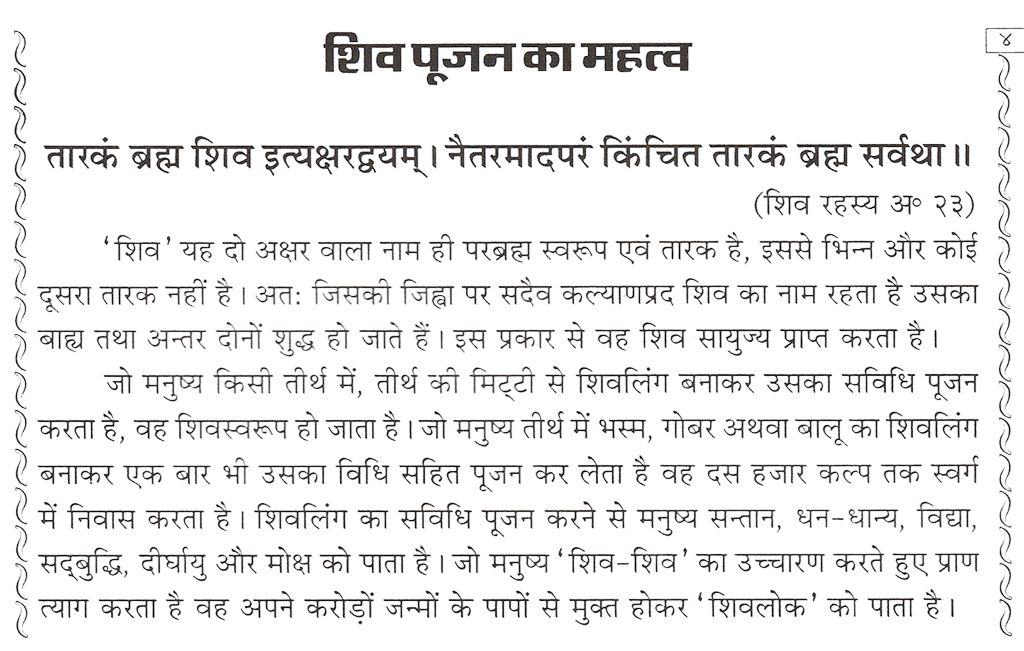 ४
शिव पूजन का महत्व
तारकं ब्रह्म शिव इत्यक्षरद्वयम्। नैतरमादपरं किंचित तारकं ब्रह्म सर्वथा॥
(शिव रहस्य अ० २३)
‘शिव’ यह दो अक्षर वाला नाम ही परब्रह्म स्वरूप एवं तारक है, इससे भिन्न और कोई
दूसरा तारक नहीं है। अतः जिसकी जिह्वा पर सदैव कल्याणप्रद शिव का नाम रहता है उसका
बाह्य तथा अन्तर दोनों शुद्ध हो जाते हैं। इस प्रकार से वह शिव सायुज्य प्राप्त करता है।
जो मनुष्य किसी तीर्थ में, तीर्थ की मिट्टी से शिवलिंग बनाकर उसका सविधि पूजन
करता है, वह शिवस्वरूप हो जाता है। जो मनुष्य तीर्थ में भस्म, गोबर अथवा बालू का शिवलिंग
बनाकर एक बार भी उसका विधि सहित पूजन कर लेता है वह दस हजार कल्प तक स्वर्ग
में निवास करता है। शिवलिंग का सविधि पूजन करने से मनुष्य सन्तान, धन-धान्य, विद्या,
सद्‌बुद्धि, दीर्घायु और मोक्ष को पाता है। जो मनुष्य ‘शिव-शिव’ का उच्चारण करते हुए प्राण
त्याग करता है वह अपने करोड़ों जन्मों के पापों से मुक्त होकर ‘शिवलोक’ को पाता है।